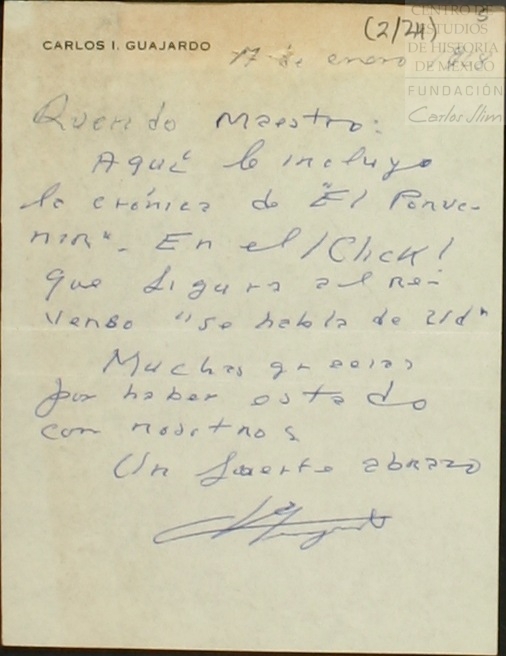 CENTRO DE
ESTUDIOS
DE HISTORIA
DE MÉXICO
FUNDACIÓN
Carlos Slim
(2/24)
CARLOS I. GUAJARDO
17 de enero
Querido Maestro:
Aquí le incluyo
la crónica de "El Porve-
nir". En el ¡Click!
que figura al re-
verso "se habla de Ud"
Muchas gracias
por haber estado
con nosotros
Un fuerte abrazo